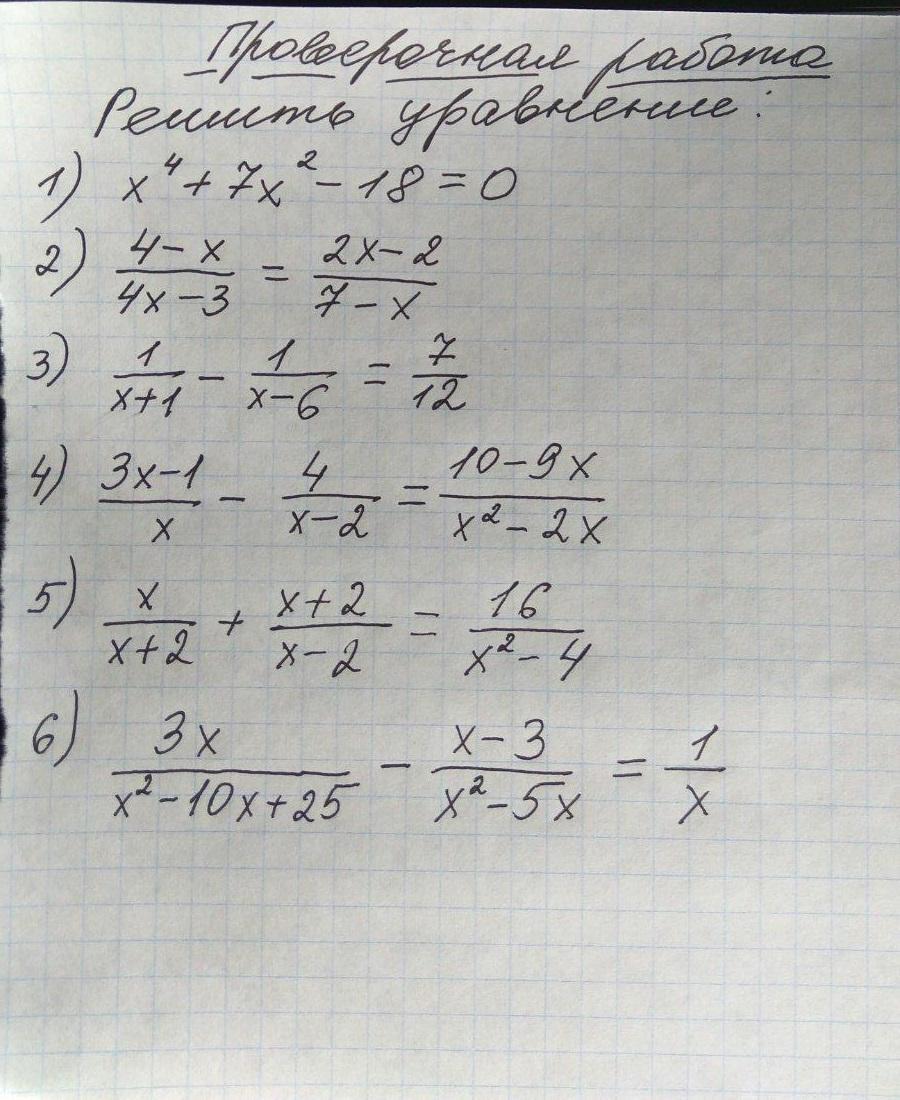 Проверочная работа
Решить уравнение:
1) x⁴ + 7x² - 18 = 0
2) (4 - x)/(4x - 3) = (2x - 2)/(7 - x)
3) 1/(x+1) - 1/(x-6) = 7/12
4) (3x - 1)/x - 4/(x-2) = (10 - 9x)/(x² - 2x)
5) x/(x+2) + (x+2)/(x-2) = 16/(x² - 4)
6) 3x/(x² - 10x + 25) - (x - 3)/(x² - 5x) = 1/x